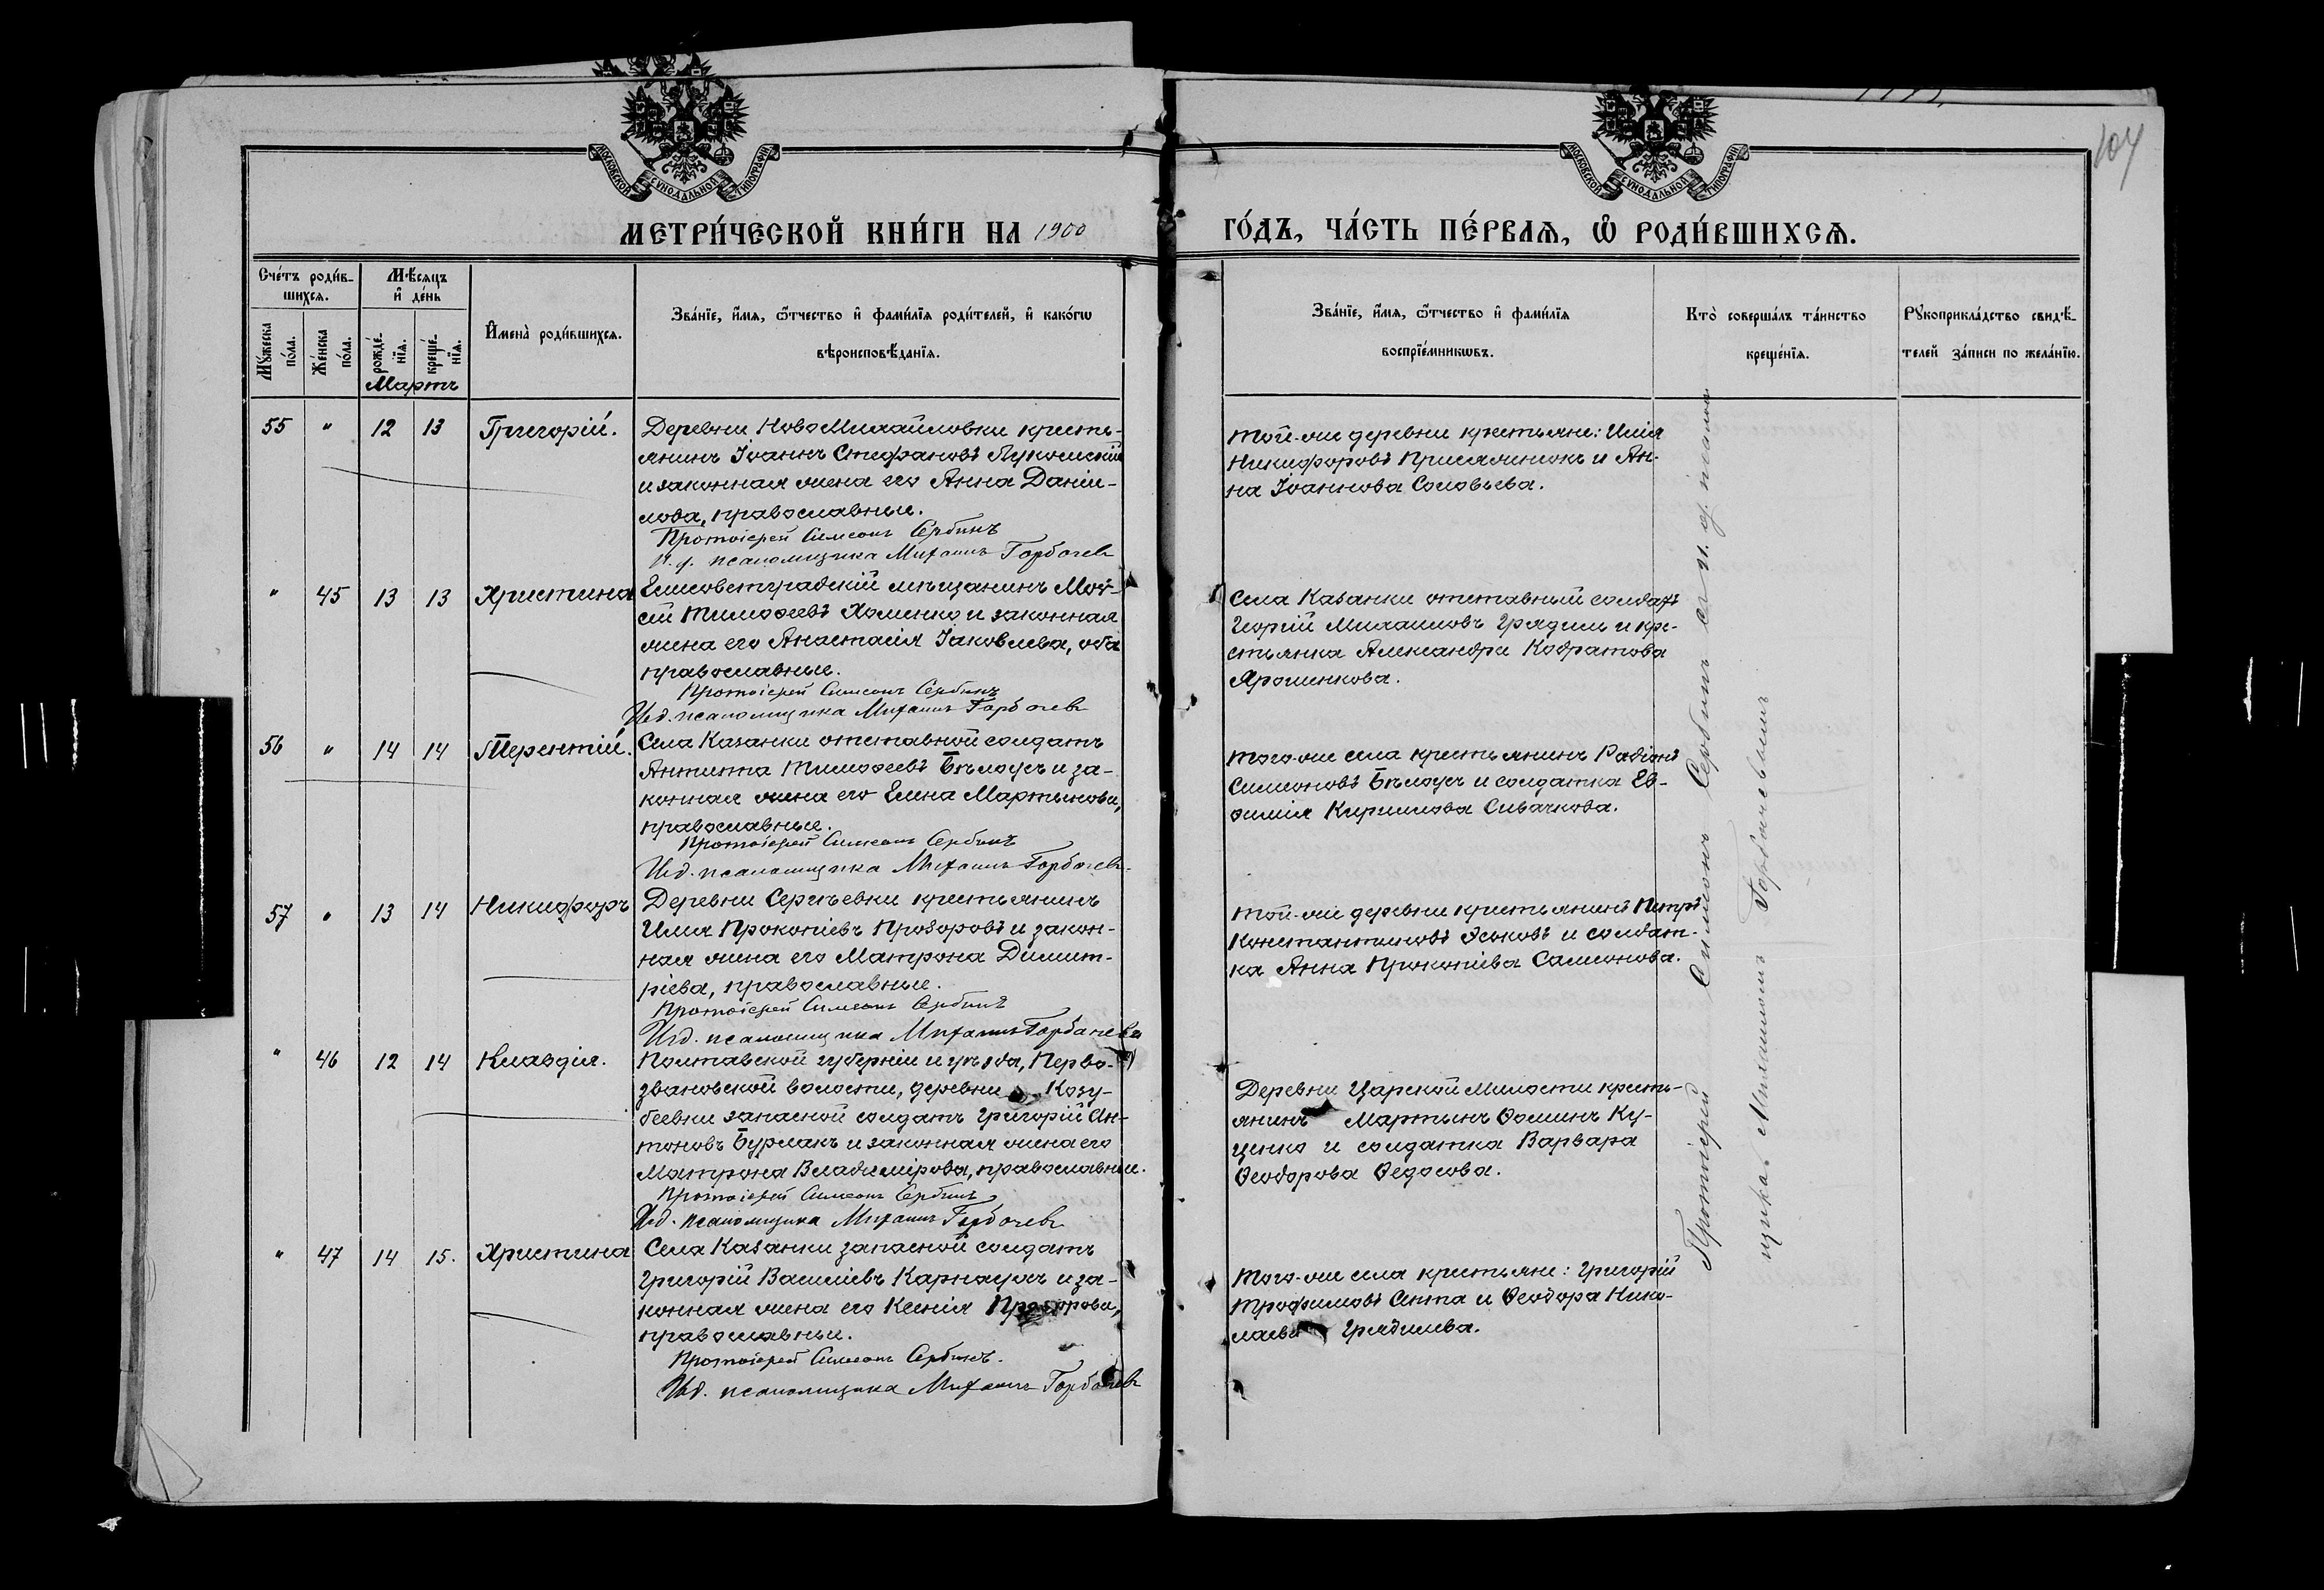 104
МОСКОВСКОЙ СѴНОДАЛЬНОЙ ТИПОГРАФІИ
МОСКОВСКОЙ СѴНОДАЛЬНОЙ ТИПОГРАФІИ
МЕТРИ́ЧЕСКОЙ КНИ́ГИ НА 1900
ГО́ДЪ, ЧА́СТЬ ПЕ́РВАѦ, Ѡ҆ РОДИ́ВШИХСѦ.
Сче́тъ роди́в-
шихсѧ.
Мꙋжеска по́ла.
Же́нска по́ла.
Мѣ́сѧцъ
и҆ де́нь
рожде́-
нїѧ.
креще́-
нїѧ.
И҆мена̀ роди́вшихсѧ.
Зва́нїе, и҆́мѧ, ѻ҆́тчество и҆ фами́лїѧ роди́телей, и҆ како́гѡ
вѣроисповѣ́данїѧ.
Зва́нїе, и҆́мѧ, ѻ҆́тчество и҆ фами́лїѧ
воспрїе́мникѡвъ.
Кто̀ соверша́лъ та́инство
креще́нїѧ.
Рꙋкоприкла́дство свидѣ́-
телей за́писи по жела́нїю.
Мартъ
55 " 12 13 Григорій.
Деревни НовоМихайловки кресть-
янинъ Іоаннъ Стефановъ Лукомскій
и законная жена его Анна Даніи-
лова, православные.
Протоіерей Симеонъ Сербинъ
И. д. псаломщика Михаилъ Горбачевъ
Той-же деревни крестьяне: Илія
Никифоровъ Присяжнюкъ и Ан-
на Іоаннова Соловьева.
" 45 13 13 Христина
Елисоветградскій мѣщанинъ Мой-
сей Тимоѳеевъ Хоменко и законная
жена его Анастасія Іаковлева, оба
православные.
Протоіерей Симеонъ Сербинъ
И.д. псаломщика Михаилъ Горбачевъ
Села Казанки отставный солдатъ
Георгій Михаиловъ Грядиль и кре-
стьянка Александра Кодратова
Ярошенкова.
56 " 14 14 Терентій.
Села Казанки отставной солдатъ
Антипа Тимоѳеевъ Бѣлоусъ и за-
конная жена его Елена Мартынова,
православные.
Протоіерей Симеонъ Сербинъ
И.д. псаломщика Михаилъ Горбачевъ
Того-же села крестьянинъ Радіонъ
Симоновъ Бѣлоусъ и солдатка Ев-
ѳимія Кириллова Сивачкова.
57 " 13 14 Никифоръ
Деревни Сергѣевки крестьянинъ
Илія Прокопіевъ Прозоровъ и закон-
ная жена его Матрона Димит-
ріева, православные.
Протоіерей Симеонъ Сербинъ
И.д. псаломщика Михаилъ Горбачевъ
Той-же деревни крестьянинъ Петръ
Константиновъ Эськовъ и солдат-
ка Анна Прокопіева Самсонова.
" 46 12 14 Клавдія.
Полтавской губерніи и уѣзда, Перво-
звановской волости, деревни Козу-
беевки запасной солдатъ Григорій Ан-
тоновъ Бурлакъ и законная жена его
Матрона Владимірова, православные.
Протоіерей Симеонъ Сербинъ
И.д. псаломщика Михаилъ Горбачевъ
Деревни Царской Милости кресть-
янинъ Мартынъ Ѳоминъ Ку-
ценко и солдатка Варвара
Ѳеодорова Ѳедосова.
" 47 14 15. Христина
Села Казанки запасной солдатъ
Григорій Василіевъ Карнаухъ и за-
конная жена его Ксенія
православные.
Протоіерей Симеонъ Сербинъ.
И.д. псаломщика Михаилъ Горбачевъ
Того-же села крестьяне: Григорій
Трофимовъ и Ѳеодора Нико-
лаева Грядилева.
Протоіерей Симеонъ Сербинъ съ и. д. псалом
щика Михаиломъ Горбачевымъ